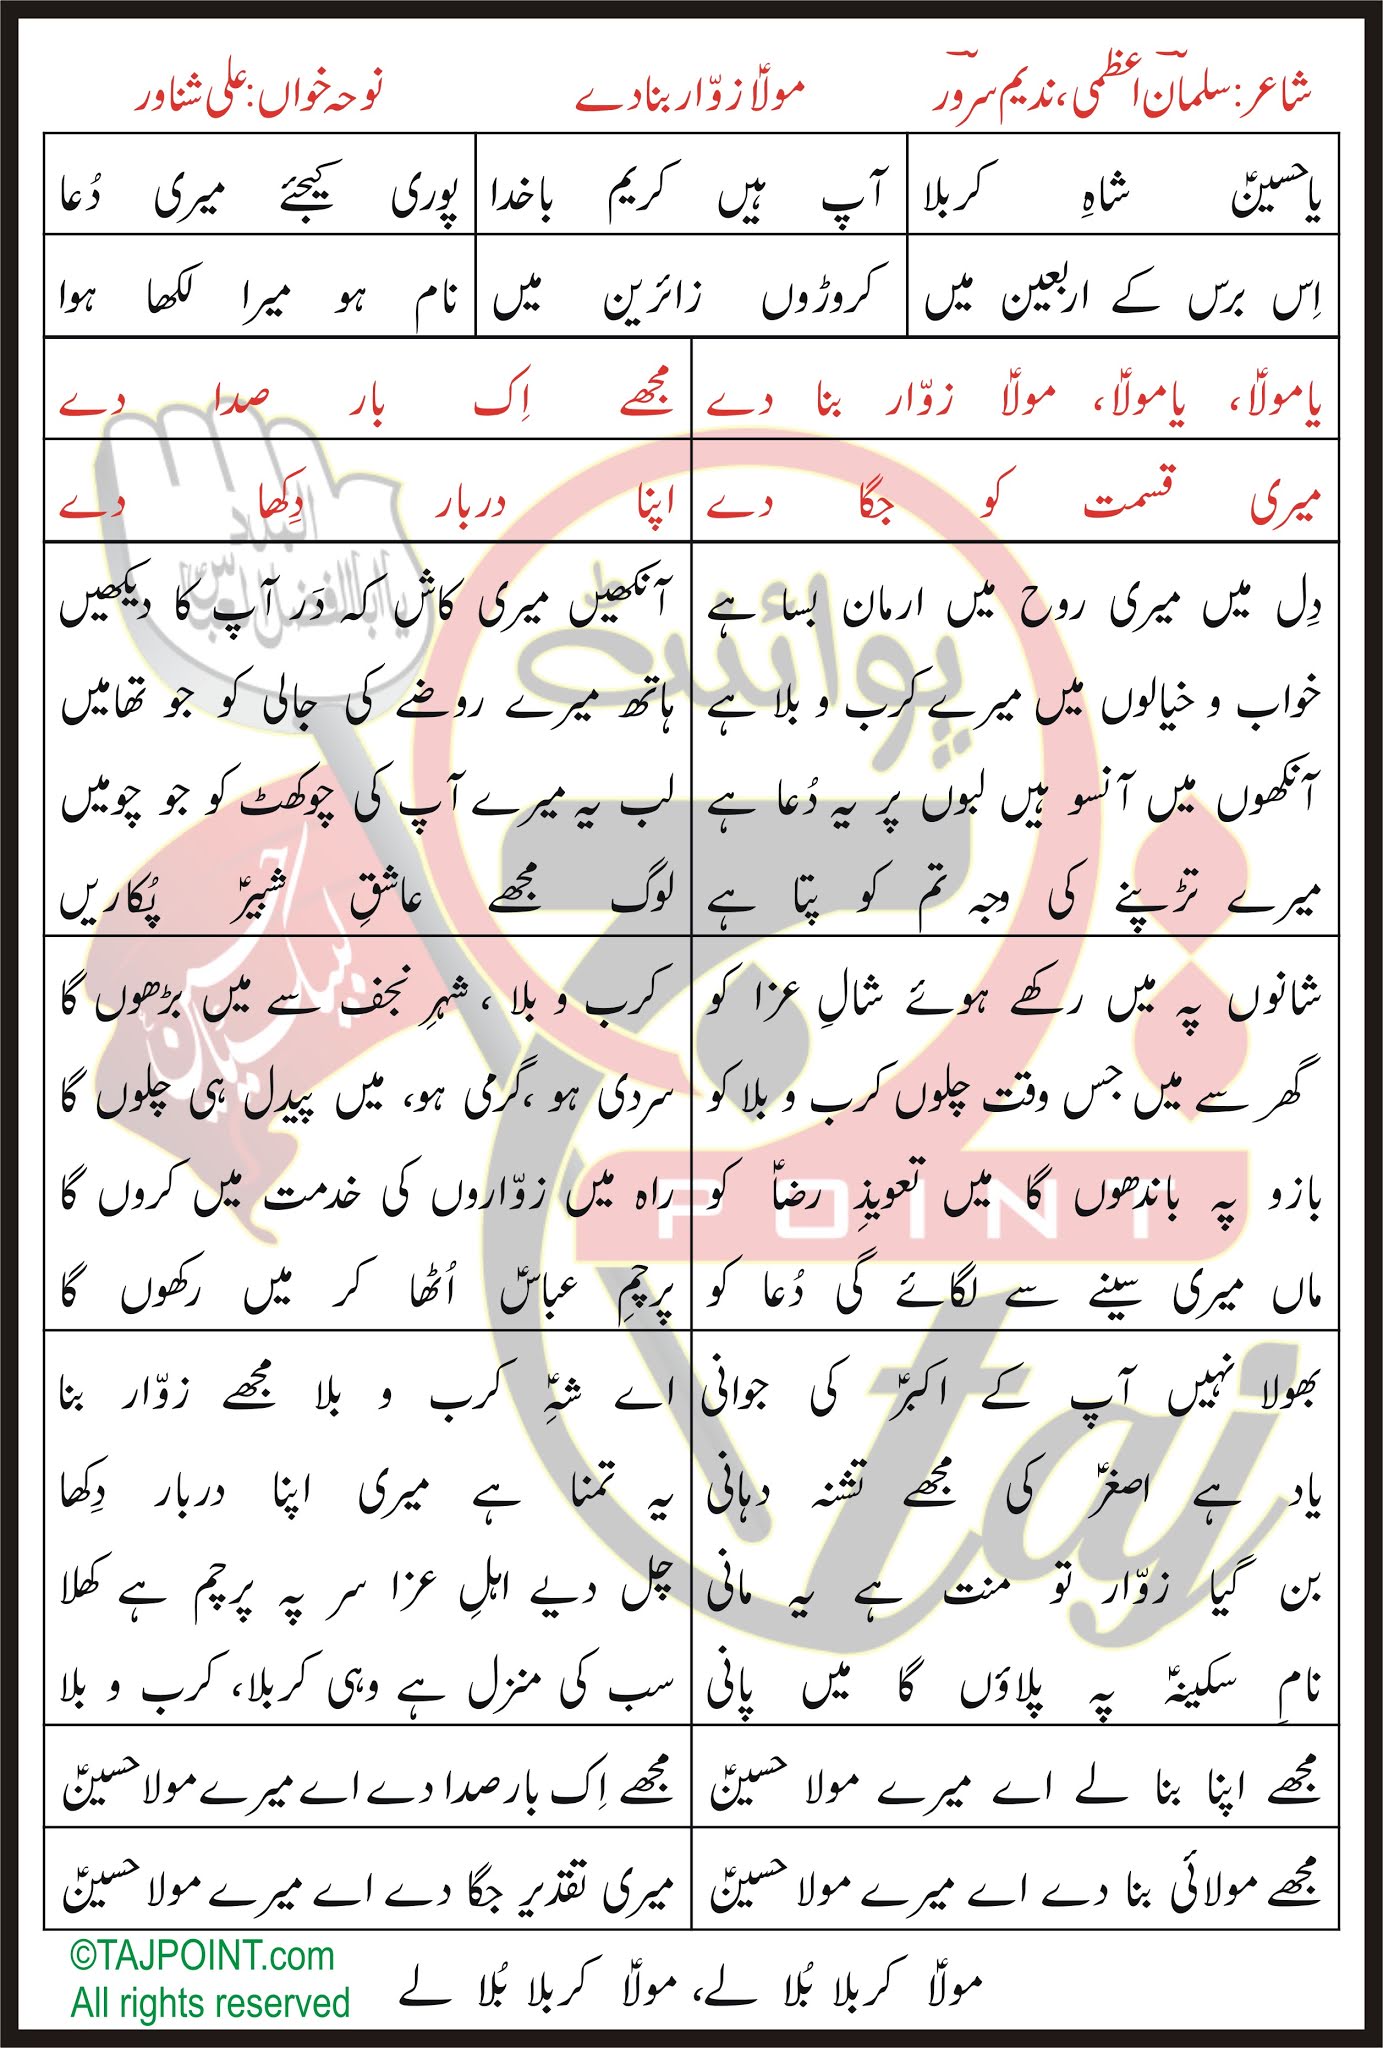 شاعر: سلمانؔ اعظمی، ندیم سرورؔ مولاؑ زوّار بنا دے نوحہ خواں: علی شناور
یا حسینؑ شاہِ کربلا آپ ہیں کریم باخدا پوری کیجئے میری دُعا
اِس برس کے اربعین میں کروڑوں زائرین میں نام ہو میرا لکھا ہوا
یا مولاؑ، یا مولاؑ، مولاؑ زوّار بنا دے مجھے اِک بار صدا دے
میری قسمت کو جگا دے اپنا دربار دِکھا دے
دِل میں میری روح میں ارمان بسا ہے آنکھیں میری کاش کہ دَر آپ کا دیکھیں
خواب و خیالوں میں میرے کرب و بلا ہے ہاتھ میرے روضے کی جالی کو جو تھامیں
آنکھوں میں آنسو ہیں لبوں پر یہ دُعا ہے لب یہ میرے آپ کی چوکھٹ کو جو چومیں
میرے تڑپنے کی وجہ تم کو پتا ہے لوگ مجھے عاشقِ شبیرؑ پُکاریں
شانوں پہ میں رکھے ہوئے شالِ عزا کو کرب و بلا ، شہرِ نجف سے میں بڑھوں گا
گھر سے میں جس وقت چلوں کرب و بلا کو سردی ہو ،گرمی ہو، میں پیدل ہی چلوں گا
بازو پہ باندھوں گا میں تعویذِ رضاؑ کو راہ میں زوّاروں کی خدمت میں کروں گا
ماں میری سینے سے لگائے گی دُعا کو پرچمِ عباسؑ اُٹھا کر میں رکھوں گا
بھولا نہیں آپ کے اکبرؑ کی جوانی اے شہِؑ کرب و بلا مجھے زوّار بنا
یاد ہے اصغرؑ کی مجھے تشنہ دہانی یہ تمنا ہے میری اپنا دربار دِکھا
بن گیا زوّار تو منت ہے یہ مانی چل دیے اہلِ عزا سر پہ پرچم ہے کھلا
نامِ سکینہؑ پہ پلاؤں گا میں پانی سب کی منزل ہے وہی کربلا، کرب و بلا
مجھے اپنا بنا لے اے میرے مولا حسینؑ مجھے اِک بار صدا دے اے میرے مولا حسینؑ
مجھے مولائی بنا دے اے میرے مولا حسینؑ میری تقدیر جگا دے اے میرے مولا حسینؑ
مولاؑ کربلا بُلا لے، مولاؑ کربلا بُلا لے
©TAJPOINT.com
All rights reserved
پوائنٹ
POINT
taj
لبیک یا حسینؑ